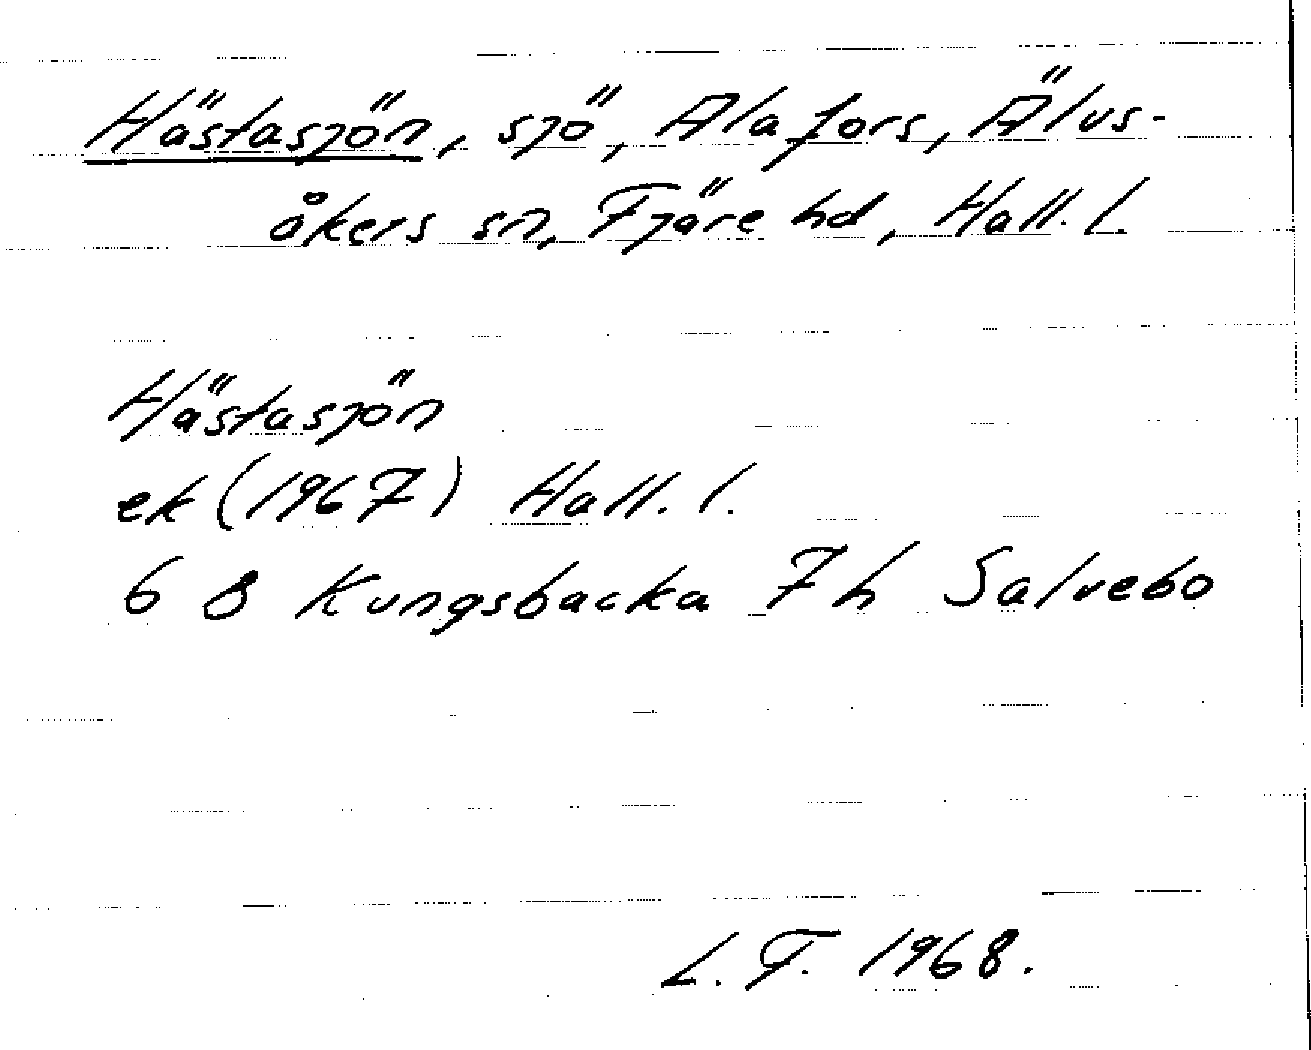 Hästasjön, sjö, Alafors, Älvs-
åkers sn, Fjäre hd, Hall. l.
Hästasjön
ek (1967) Hall. l.
6 B Kungsbacka 7 h Salvebo
L. F. 1968.